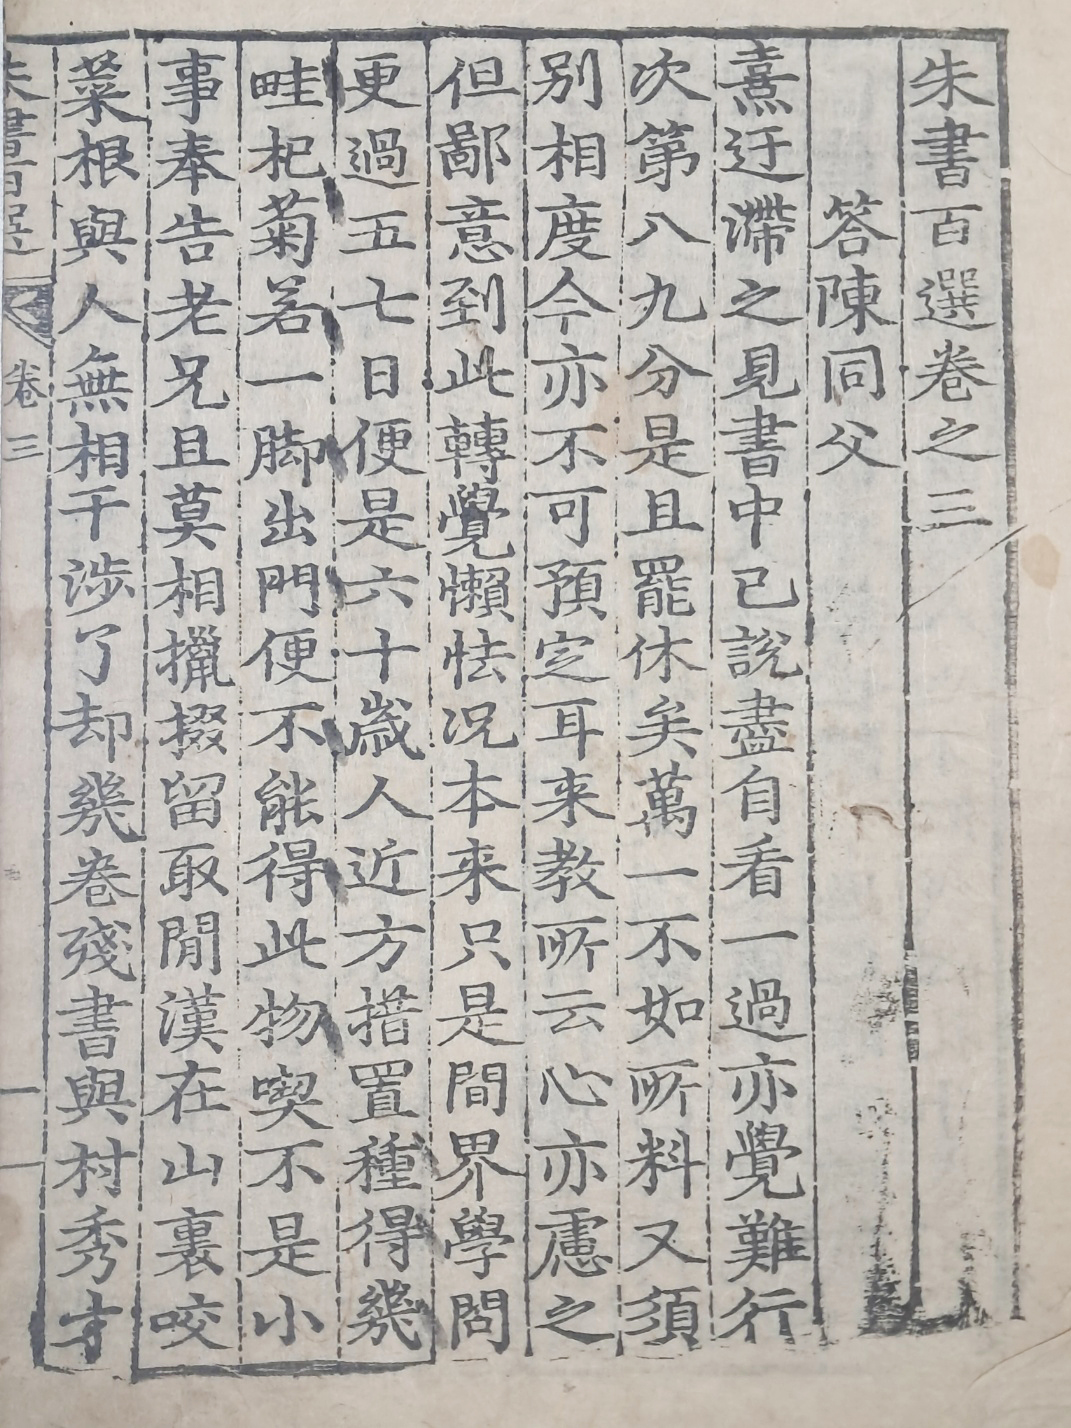 朱書百選卷之三
答陳同父
熹迂滯之見書中已說盡自看一過亦覺難行
次第八九分是且罷休矣萬一不如所料又須
别相度今亦不可預定耳来教所云心亦慮之
但鄙意到此轉覺懶怯况本来只是間界學問
更過五七日便是六十歲人近方措置種得幾
畦杞菊若一脚出門便不能得此物喫不是小
事奉告老兄且莫相攛掇留取閒漢在山裏咬
菜根與人無相干涉了却幾卷殘書與村秀才
朱書百選 卷三 一